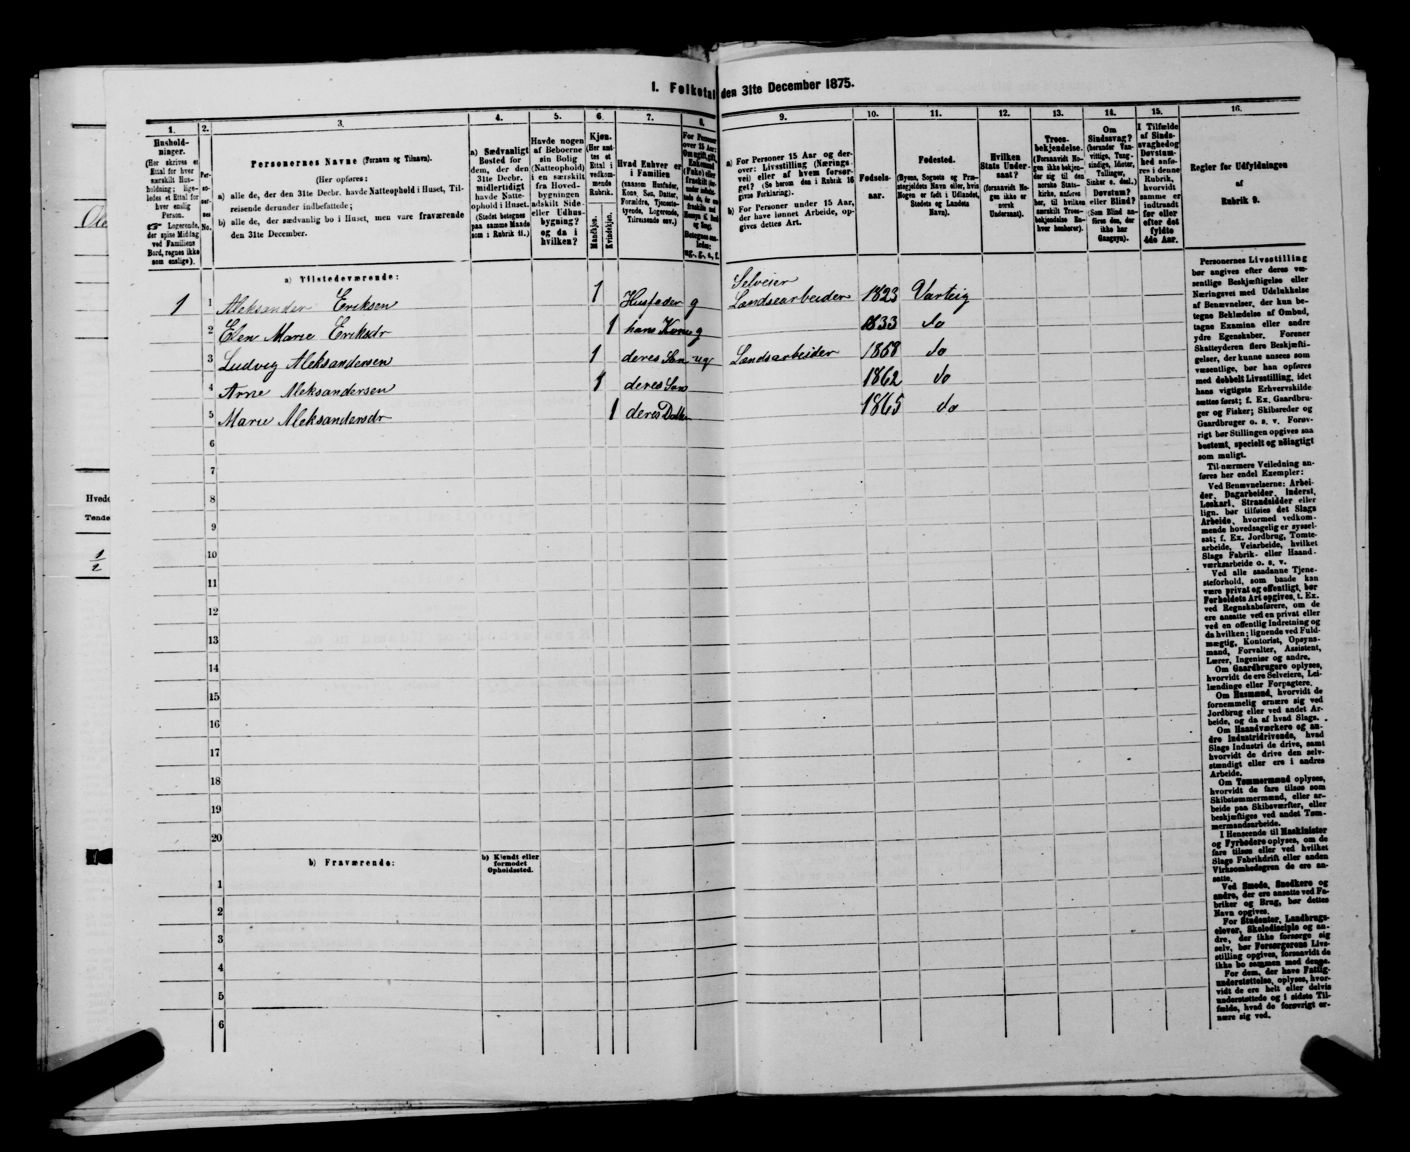 I. Folketal den 31te December 1875.
1. 2. 3. 4. 5. 6. 7. 8. 9. 10. 11. 12. 13. 14. 15. 16.
Hushold-
ninger.
(Her skrives et
Ettal for hver
særskilt Hus-
holdning; lige-
ledes et Ettal for
hver enslig
Person.
☞ Logerende,
der spise Middag
ved Familiens
Bord, regnes ikke
som enslige).
Per-
so-
ner-
nes
No.
Personernes Navne (Fornavn og Tilnavn).
(Her opføres:
a) alle de, der den 31te Decbr. havde Natteophold i Huset, Til-
reisende derunder indbefattede;
b) alle de, der sædvanlig bo i Huset, men vare fraværende
den 31te December.
a) Sædvanligt
Bosted for
dem, der den
31te Decbr.
midlertidigt
havde Natte-
ophold i Huset.
(Stedet betegnes
paa samme Maade
som i Rubrik 11.)
Havde nogen
af Beboerne
sin Bolig
(Natteophold)
i en særskilt
fra Hoved-
bygningen
adskilt Side-
eller Udhus-
bygning?
og da i
hvilken?
Kjøn.
(Her sæt-
tes et
Ettal i
vedkom-
mende
Rubrik.
Mandkjøn.
Kvindekjøn.
Hvad Enhver er
i Familien
(saasom Husfader,
Kone, Søn, Datter,
Forældre, Tjeneste-
tyende, Logerende,
Tilreisende osv.)
For Personer
over 15 Aar:
Om ugift, gift,
Enkemand
(Enke) eller
fraskilt
Betegnes saa-
ledes:
ug., g., e., f.
a) For Personer 15 Aar og der-
over: Livsstilling (Nærings-
vei) eller af hvem forsør-
get? (Se herom den i Rubrik 16
givne Forklaring).
b) For Personer under 15 Aar,
der have lønnet Arbeide, op-
gives dettes Art.
Fødsels-
aar.
Fødested.
(Byens, Sognets og Præ-
stegjeldets Navn eller, hvis
Nogen er født i Udlandet,
Stedets og Landets
Navn).
Hvilken
Stats Under-
saat?
(forsaavidt No-
gen ikke er
norsk
Undersaat).
Troes-
bekjendelse.
(Forsaavidt No-
gen ikke bekjen-
der sig til den
norske Stats-
kirke, anføres
her, til hvilken
særskilt Troes-
bekjendelse En-
hver henhører).
Om
Sindssvag?
(herunder Van-
vittige, Tung-
sindige, Idioter,
Tullinger,
Sinker o. desl.)
Døvstum?
eller Blind?
(Som Blind an-
føres den, der
ikke har
Gangsyn).
I Tilfælde
af Sinds-
svaghed og
Døvstum-
hed anfø-
res i denne
Rubrik,
hvorvidt
samme er
indtraadt
før eller
efter det
fyldte
4de Aar.
Regler for Udfyldningen
af
Rubrik 9.
a) Tilstedeværende:
Selveier
1 1 Aleksander Eriksen 1 Husfader g Landsearbeider 1823 Varteig
2 Elen Marie Eriksdr 1 hans Kone g 1833 do
3 Ludvig Aleksandersen 1 deres Søn ug Landsarbeider 1858 do
4 Arne Aleksandersen 1 deres Søn 1862 do
5 Marie Aleksandersdr 1 deres Datter 1865 do
6
7
8
9
10
11
12
13
14
15
16
17
18
19
20
b) Fraværende:
b) Kjendt eller
formodet
Opholdssted.
1
2
3
4
5
6
Personernes Livsstilling
bør angives efter deres væ-
sentlige Beskjæftigelse eller
Næringsvei med Udelukkelse
af Benævnelser, der kun be-
tegne Beklædelse af Ombud,
tagne Examina eller andre
ydre Egenskaber. Forener
Skatteyderen flere Beskjæfti-
gelser, der kunne ansees som
væsentlige, bør han opføres
med dobbelt Livsstilling, idet
hans vigtigste Erhvervskilde
sættes først; f. Ex. Gaardbru-
ger og Fisker; Skibsreder og
Gaardbruger o. s. v. Forøv-
rigt bør Stillingen opgives saa
bestemt, specielt og nøiagtigt
som muligt.
Til nærmere Veiledning an-
føres her endel Exempler:
Ved Benævnelserne: Arbei-
der, Dagarbeider, Inderst,
Løskarl, Strandsidder eller
lign. bør tilføies det Slags
Arbeide, hvormed vedkom-
mende hovedsagelig er syssel-
sat; f. Ex. Jordbrug, Tomte-
arbeide, Veiarbeide, hvilket
Slags Fabrik- eller Haand-
værksarbeide o. s. v.
Ved alle saadanne Tjene-
steforhold, som baade kan
være privat og offentligt, bør
Forholdets Art opgives, t. Ex.
ved Regnskabsførere, om de
ere ansatte ved en privat eller
ved en offentlig Indretning og
da hvilken; lignende ved Fuld-
mægtig, Kontorist, Opsyns-
mand, Forvalter, Assistent,
Lærer, Ingeniør og andre.
Om Gaardbrugere oplyses,
hvorvidt de ere Selveiere, Lei-
lændinge eller Forpagtere.
Om Husmænd, hvorvidt de
fornemmelig ernære sig ved
Jordbrug eller ved andet Ar-
beide, og da af hvad Slags.
Om Haandværkere og an-
dre Industridrivende, hvad
Slags Industri de drive, samt
hvorvidt de drive den selv-
stændigt eller ere i andres
Arbeide.
Om Tømmermænd oplyses,
hvorvidt de fare tilsøs som
Skibstømmermænd, eller ar-
beide paa Skibsværfter, eller
beskjæftiges ved andet Tøm-
mermandsarbeide.
I Henseende til Maskinister
og Fyrbødere oplyses, om de
fare tilsøs eller ved hvilket
Slags Fabrikdrift eller anden
Virksomhedsgren de ere an-
satte.
Ved Smede, Snedkere og
andre, der ere ansatte ved Fa-
briker og Brug, bør dettes
Navn opgives.
For Studenter, Landbrugs-
elever, Skoledisciple og an-
dre, der ikke forsørge sig
selv, bør Forsørgerens Livs-
stilling opgives, forsaavidt de
ikke bo sammen med denne.
For dem, der have Fattig-
understøttelse, oplyses, hvor-
vidt de ere helt eller delvis
understøttede og i sidste Til-
fælde, hvad de forøvrigt er-
nære sig ved.
Hvede
Tønde
1/2